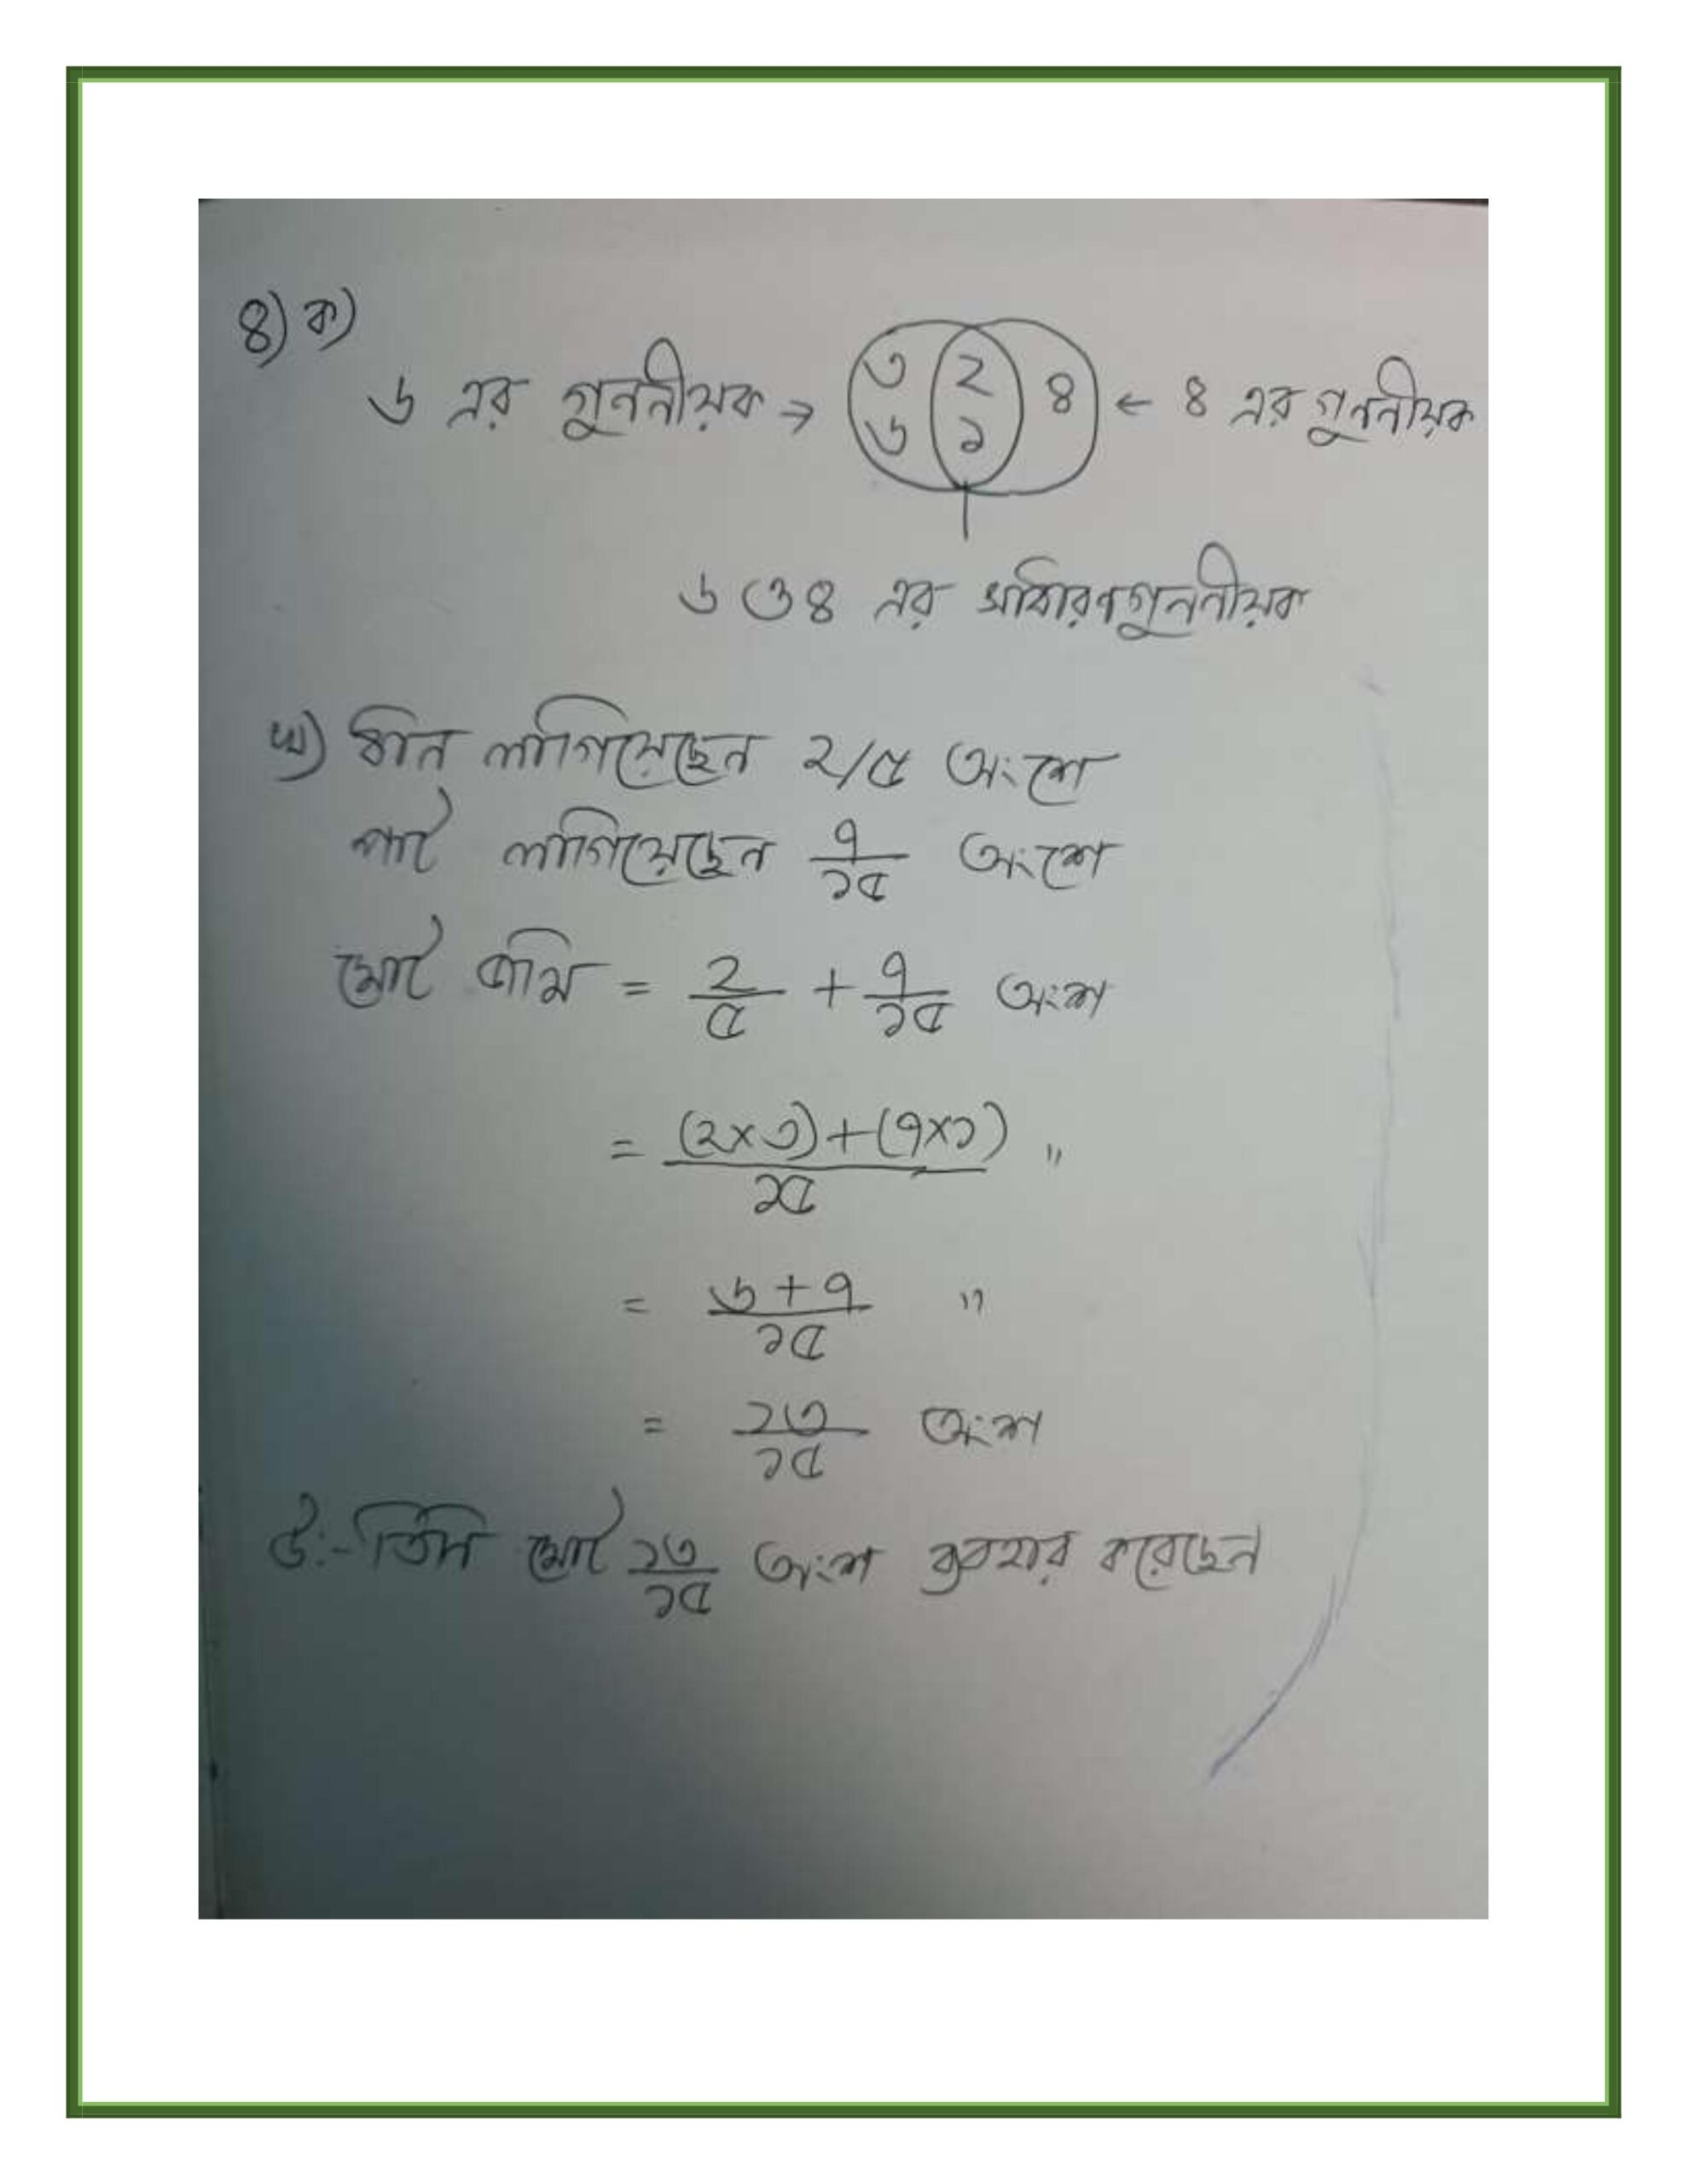 ৪) ক)
৬ এর গুননীয়ক → ৩ ৬ ২ ১ ৪ ← ৪ এর গুননীয়ক
৬ ও ৪ এর সাধারণ গুননীয়ক
খ) ধান লাগিয়েছেন ২/৫ অংশে
পাট লাগিয়েছেন ৭/১৫ অংশে
মোট জমি = ২/৫ + ৭/১৫ অংশ
= (২×৩)+(৭×১)/১৫ "
= ৬+৭/১৫ "
= ১৩/১৫ অংশ
উ:- তিনি মোট ১৩/১৫ অংশ ব্যবহার করেছেন